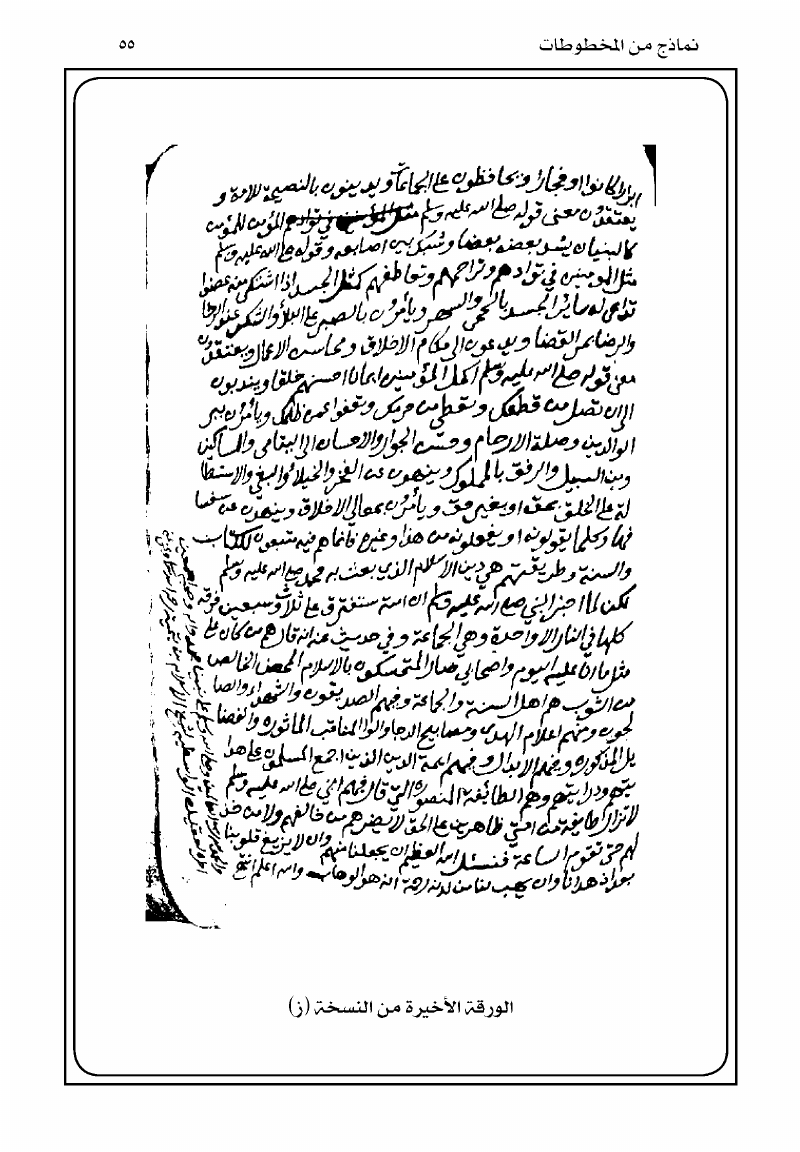 نماذج من المخطوطات
٥٥
ابرارا كانوا او فجارا ويحافظون على الجماعات ويدينون بالنصيحة للامة و
يعتقدون معنى قوله صلى الله عليه وسلم المؤمن للمؤمن
كالبنيان يشد بعضه بعضا وشبك بين اصابعه وقوله صلى الله عليه وسلم
مثل المومنين في توادهم وتراحمهم وتعاطفهم كمثل الجسد اذا اشتكى منه عضوا
تداعى له سائر الجسد بالحمى والسهر ويأمرون بالصبر على البلاء والشكر عند الرخا
والرضا بمر القضا ويدعون الى مكارم الاخلاق ومحاسن الاعمال ويعتقدون
معنى قوله صلى الله عليه وسلم اكمل المؤمنين ايمانا احسنهم خلقا ويندبون
الى ان تصل من قطعك وتعطي من حرمك وتعفوا عمن ظلمك ويأمرون ببر
الوالدين وصلة الارحام وحسن الجوار والاحسان الى اليتامى والمساكين
وبن السبيل والرفق بالمملوك وينهون عن الفخر والخيلاء والبغي والاستطا
لة على الخلق بحق او بغير حق ويأمرون بمعالي الاخلاق وينهون عن سفسا
فها وكلما يقولونه او يفعلونه من هذا وغيره فانما هم فيه متبعون للكتاب
والسنة وطريقتهم هي دين الاسلام الذي بعث به محمد صلى الله عليه وسلم
لكن لما اخبر النبي صلى الله عليه وسلم ان امته ستفترق على ثلاث وسبعين فرقة
كلها في النار الا واحدة وهي الجماعة وفي حديث عنه انه قال هم من كان على
مثل ما انا عليه اليوم واصحابي صار المتمسكون بالاسلام المحض الخالص
من الشوب هم اهل السنة والجماعة وفيهم الصديقون والشهداء والصا
لحون ومنهم اعلام الهدى ومصابيح الدجا والوا المناقب الماثورة والفضا
يل المذكورة وفيهم الابدال وفيهم ايمة الدين الذين اجمع المسلمون على هدا
يتهم ودرايتهم وهم الطائفة المنصورة التي قال فيهم النبي صلى الله عليه وسلم
لا تزال طايفة من امتي ظاهرين على الحق لا يضرهم من خالفهم ولا من خذ
لهم حتى تقوم الساعة فنسئل الله العظيم ان يجعلنا منهم وان لا يزيغ قلوبنا
بعد اذ هدانا وان يهب لنا من لدنه رحمة انه هو الوهاب والله اعلم
الورقة الأخيرة من النسخة (ز)